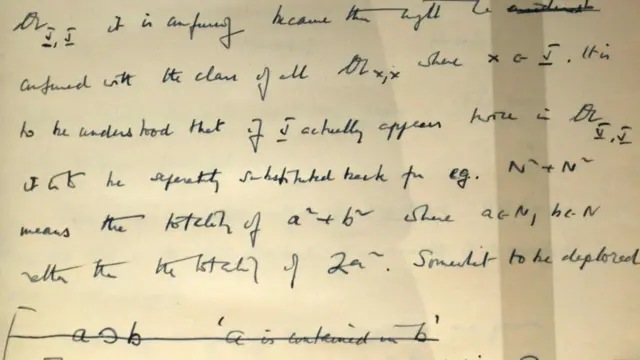 𝔄 V, V it is confusing because this might be
confused with the class of all 𝔄 x, x where x ∈ V. It is
to be understood that if V actually appears twice in 𝔄 V, V
it is to be separately substituted back for eg. N² + N²
means the totality of a² + b² where a ∈ N, b ∈ N
rather than the totality of 2a². Somewhat to be deplored
a ⊃ b 'a is contained in b'